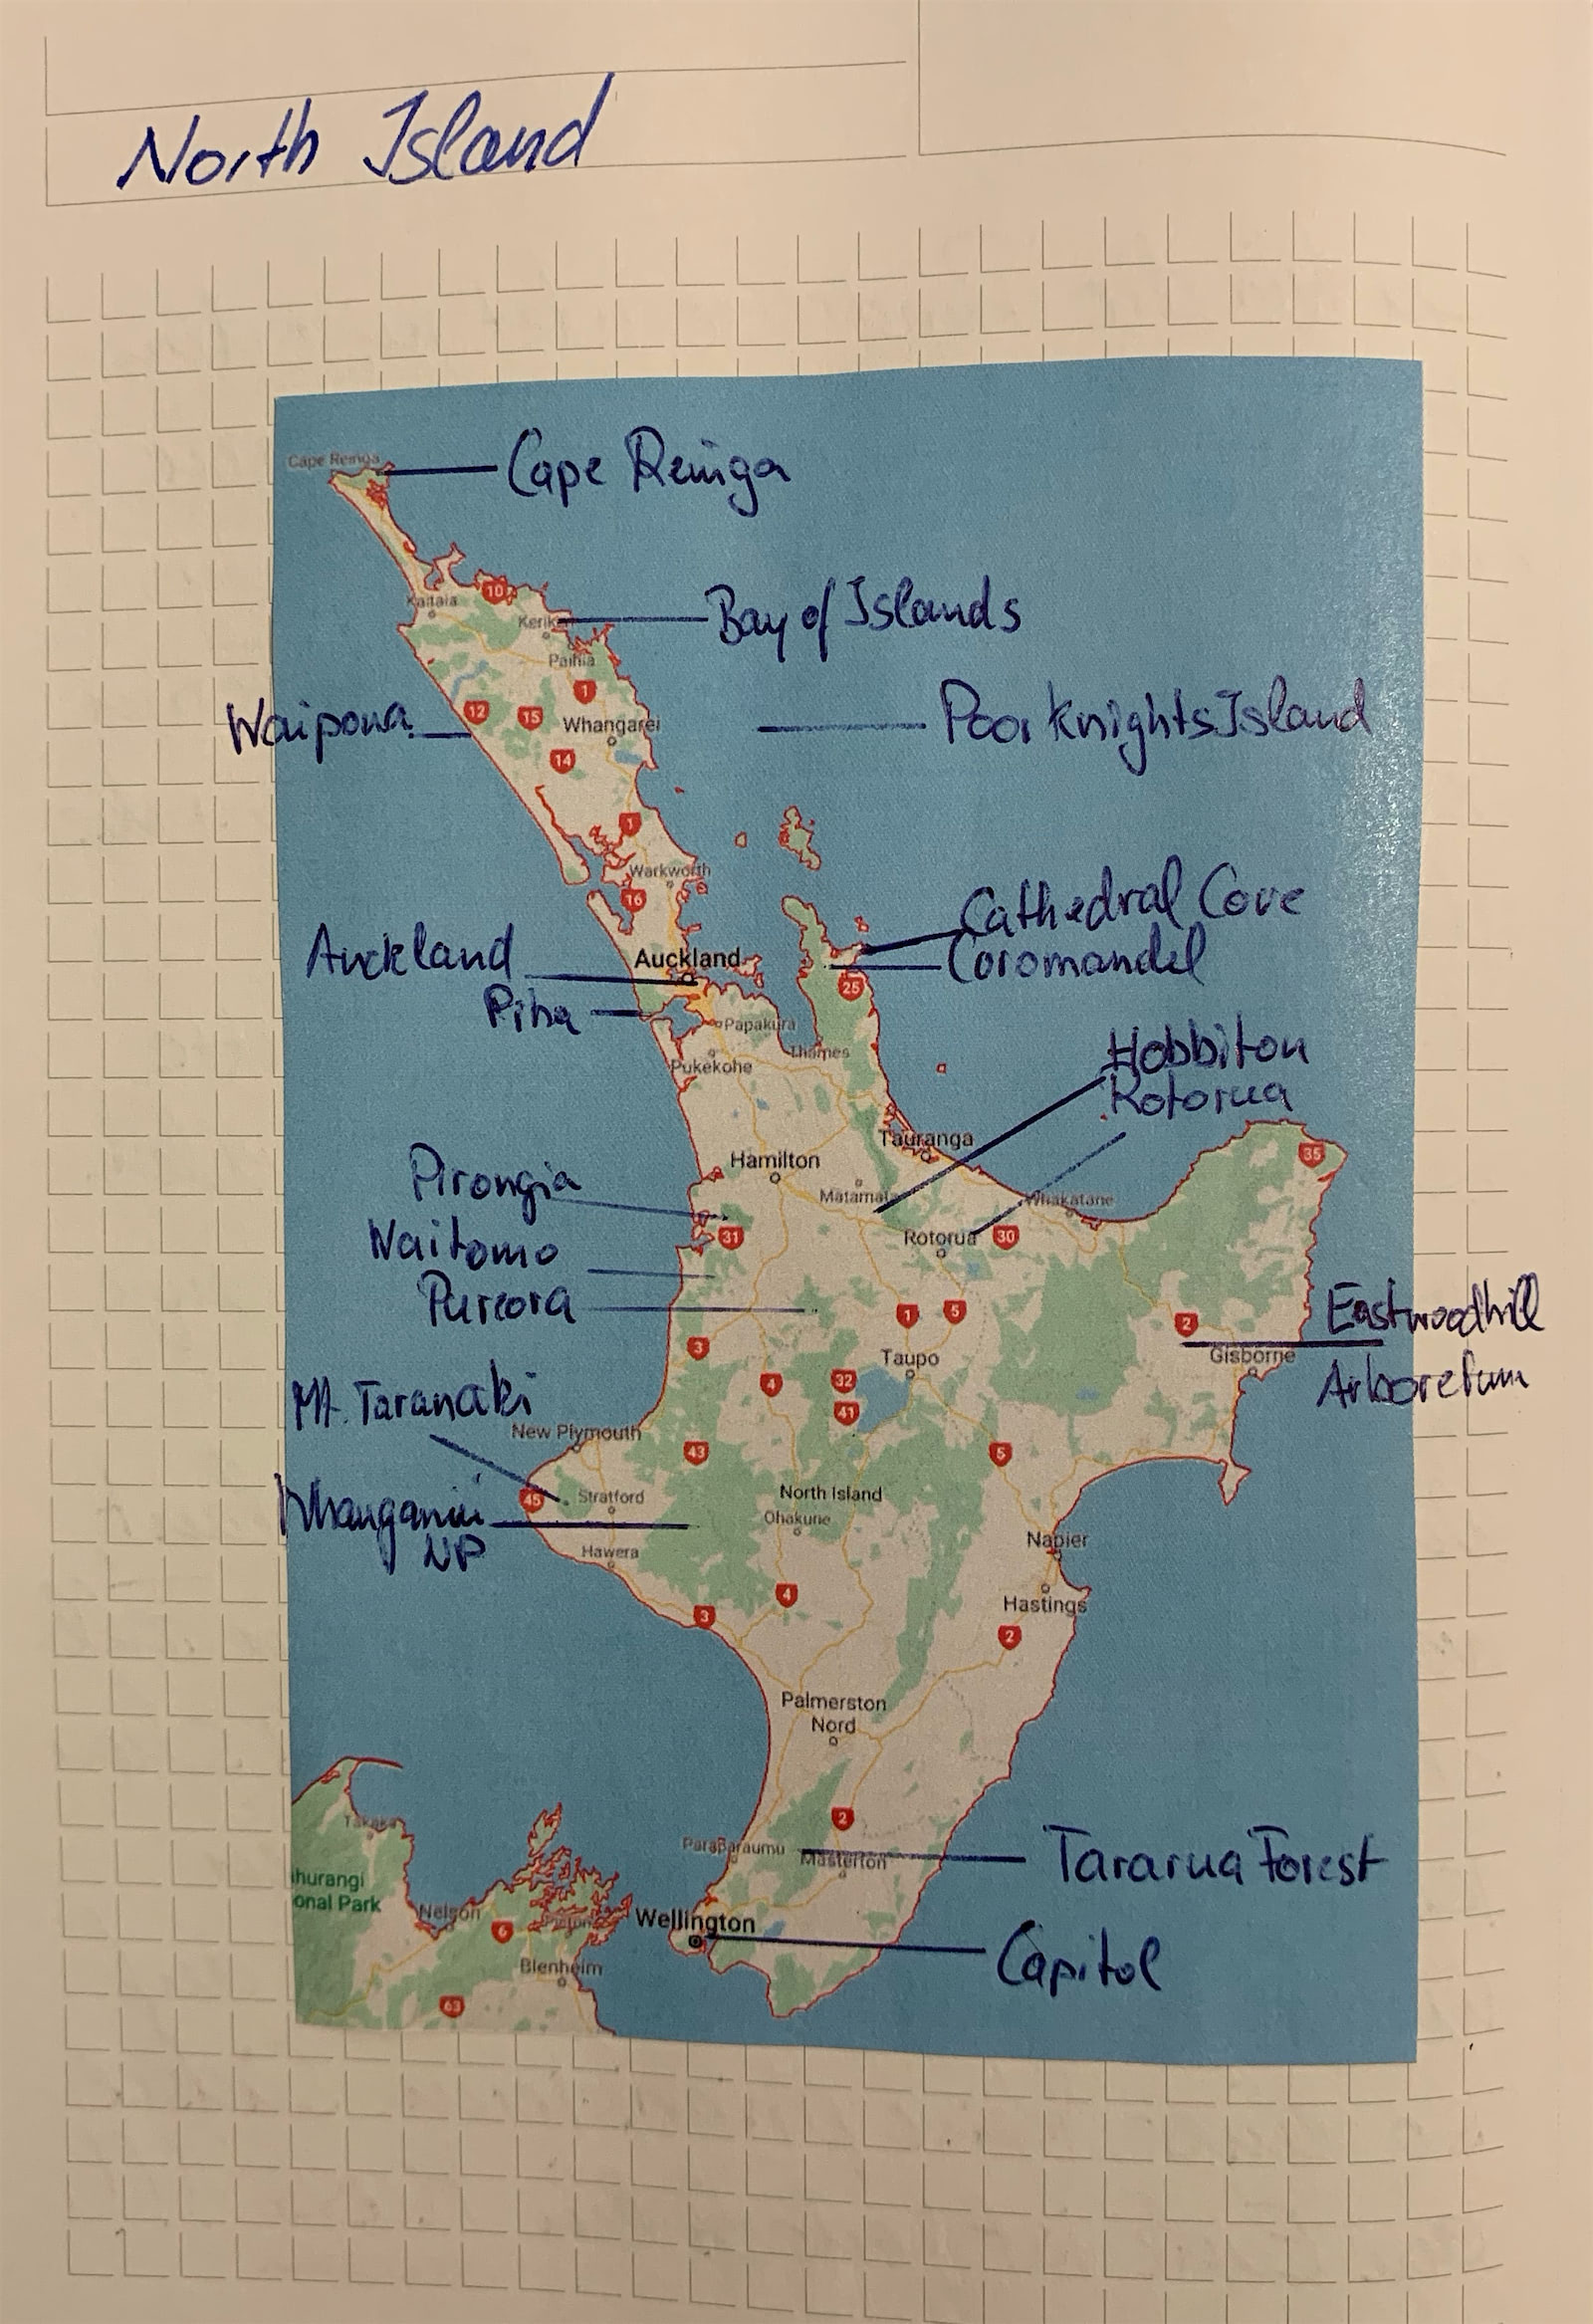 North Island
Cape Reinga
Cape Reinga
10
Kaitaia
Kerikeri
Bay of Islands
Paihia
1
Waipoua
12
15
Whangarei
Poor Knights Island
14
1
Warkworth
16
Cathedral Cove
Auckland
Auckland
Coromandel
25
Piha
Papakura
Thames
Pukekohe
Hobbiton
Rotorua
Tauranga
35
Hamilton
Pirongia
Matamata
Whakatane
31
Rotorua
30
Waitomo
Pureora
1
5
2
Eastwoodhill
Arboretum
3
Taupo
Gisborne
4
32
Mt. Taranaki
41
New Plymouth
43
5
45
Stratford
North Island
Whanganui
NP
Ohakune
Hawera
Napier
4
Hastings
3
2
Palmerston
Nord
2
Takaka
Paraparaumu
Masterton
Tararua Forest
hurangi
onal Park
Nelson
6
Picton
Wellington
Capitol
Blenheim
63